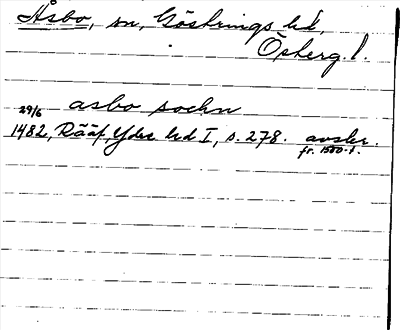 Åsbo, sn, Göstrings hd,
Österg. l.
asbo sochn
29/6 1482, Rääf, Ydre hd I, s. 278. avskr.
fr. 1500-t.